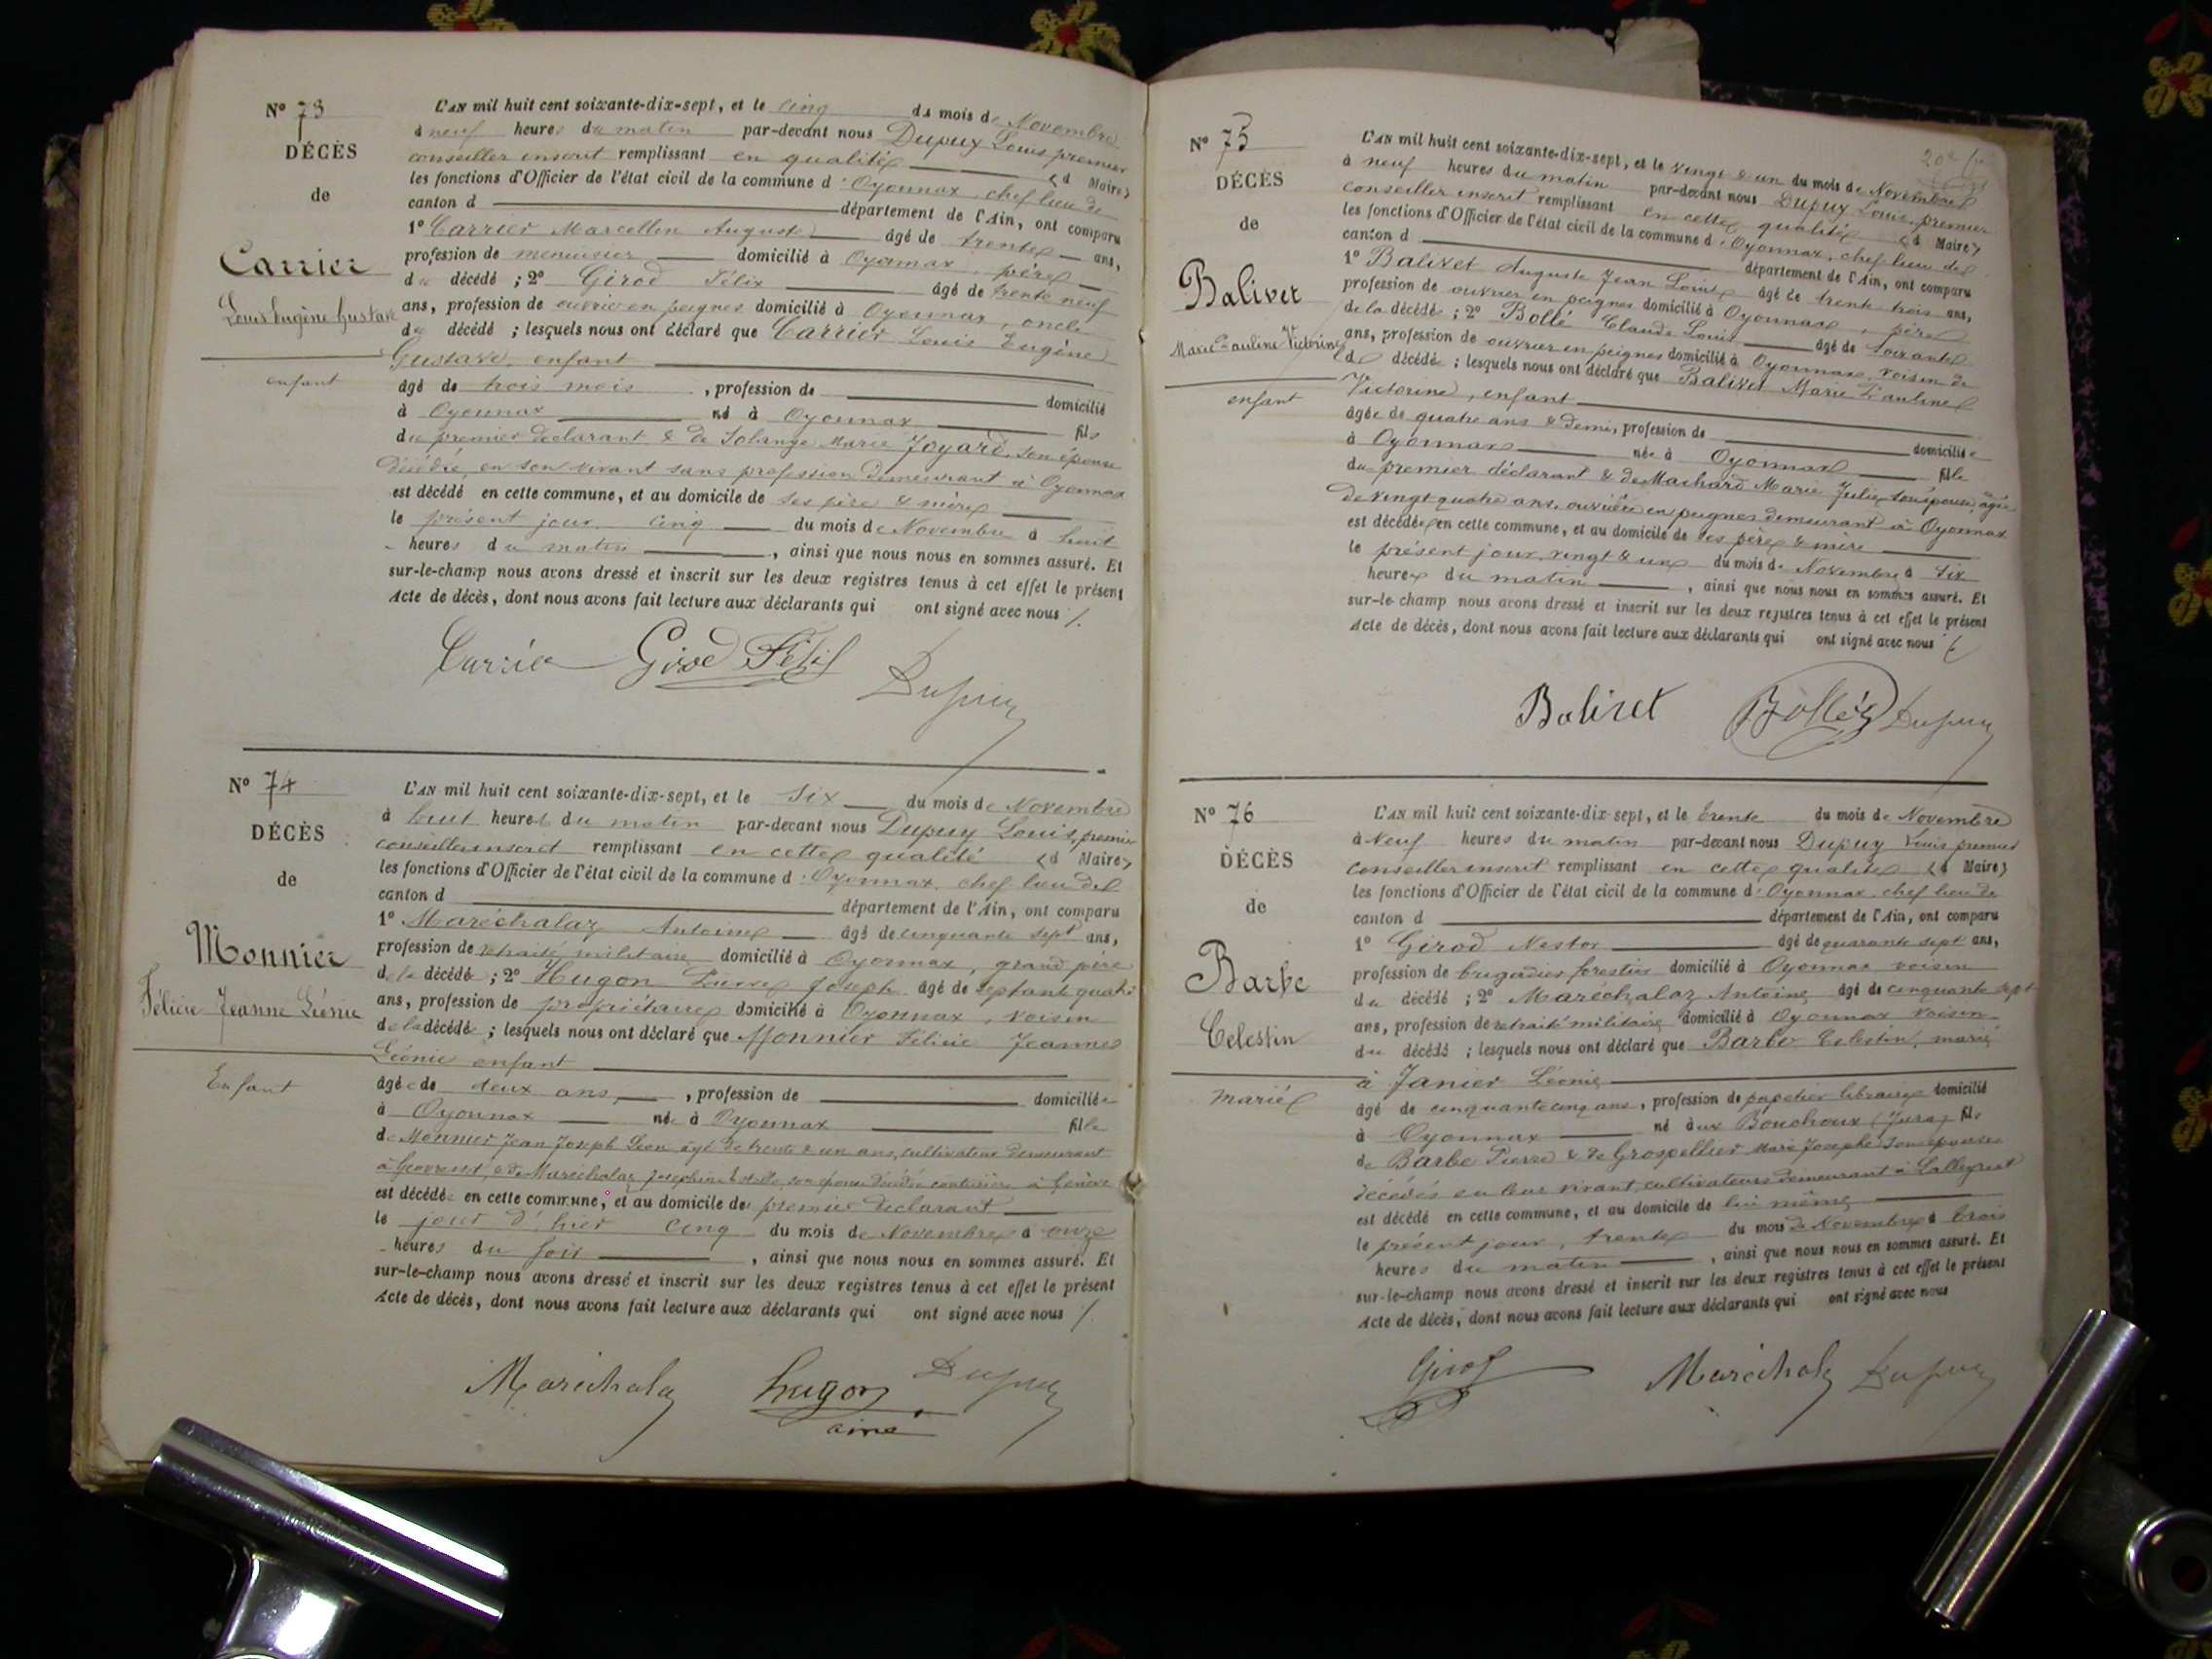 N° 73
DÉCÈS
de
Carrier
Louis Eugène Gustave
enfant
L'AN mil huit cent soixante-dix-sept, et le cinq du mois de Novembre
à neuf heures du matin par-devant nous Dupuy Louis premier
conseiller inscrit remplissant en qualité (d Maire)
les fonctions d'Officier de l'état civil de la commune d'Oyonnax, chef lieu de
canton d département de l'Ain, ont comparu
1° Carrier Marcellin Auguste âgé de trente ans,
profession de menuisier domicilié à Oyonnax, père
du décédé ; 2° Girod Félix âgé de trente neuf
ans, profession de ouvrier en peignes domicilié à Oyonnax, oncle
du décédé ; lesquels nous ont déclaré que Carrier Louis Eugène
Gustave, enfant
âgé de trois mois, profession de domicilié
à Oyonnax né à Oyonnax fils
du premier déclarant & de Solange Marie Joyard, son épouse
décédée, en son vivant sans profession demeurant à Oyonnax
est décédé en cette commune, et au domicile de ses père & mère
le présent jour cinq du mois de Novembre à huit
heures du matin, ainsi que nous nous en sommes assuré. Et
sur-le-champ nous avons dressé et inscrit sur les deux registres tenus à cet effet le présent
Acte de décès, dont nous avons fait lecture aux déclarants qui ont signé avec nous
Carrier Girod Félix Dupuy
N° 74
DÉCÈS
de
Monnier
Félicie Jeanne Léonie
Enfant
L'AN mil huit cent soixante-dix-sept, et le six du mois de Novembre
à huit heures du matin par-devant nous Dupuy Louis, premier
conseiller inscrit remplissant en cette qualité (d Maire)
les fonctions d'Officier de l'état civil de la commune d'Oyonnax, chef lieu de
canton d département de l'Ain, ont comparu
1° Maréchalaz Antoine âgé de cinquante sept ans,
profession de retraité militaire domicilié à Oyonnax, grand père
de la décédée ; 2° Hugon Pierre Joseph âgé de septante quatre
ans, profession de propriétaire domicilié à Oyonnax, voisin
de la décédée ; lesquels nous ont déclaré que Monnier Félicie Jeanne
Léonie enfant
âgée de deux ans, profession de domiciliée
à Oyonnax née à Oyonnax fille
de Monnier Jean Joseph Léon âgé de trente & un ans, cultivateur demeurant
à & de Maréchalaz Joséphine son épouse décédée couturière à
est décédée en cette commune, et au domicile du premier déclarant
le jour d'hier cinq du mois de Novembre à onze
heures du soir, ainsi que nous nous en sommes assuré. Et
sur-le-champ nous avons dressé et inscrit sur les deux registres tenus à cet effet le présent
Acte de décès, dont nous avons fait lecture aux déclarants qui ont signé avec nous
Maréchalaz hugon Dupuy
ainé
N° 75
DÉCÈS
de
Balivet
Marie Pauline Victorine
enfant
L'AN mil huit cent soixante-dix-sept, et le vingt & un du mois de Novembre
à neuf heures du matin par-devant nous Dupuy Louis, premier
conseiller inscrit remplissant en cette qualité (d Maire)
les fonctions d'Officier de l'état civil de la commune d'Oyonnax, chef lieu de
canton d département de l'Ain, ont comparu
1° Balivet Auguste Jean Louis âgé de trente trois ans,
profession de ouvrier en peignes domicilié à Oyonnax, père
de la décédée ; 2° Bollé Claude Louis âgé de soixante
ans, profession de ouvrier en peignes domicilié à Oyonnax, voisin de
la décédée ; lesquels nous ont déclaré que Balivet Marie Pauline
Victorine, enfant
âgée de quatre ans & demi, profession de domiciliée
à Oyonnax née à Oyonnax fille
du premier déclarant & de Machard Marie Julie son épouse, âgée
de vingt quatre ans, ouvrière en peignes demeurant à Oyonnax
est décédée en cette commune, et au domicile de ses père & mère
le présent jour, vingt & un du mois de Novembre à six
heures du matin, ainsi que nous nous en sommes assuré. Et
sur-le-champ nous avons dressé et inscrit sur les deux registres tenus à cet effet le présent
Acte de décès, dont nous avons fait lecture aux déclarants qui ont signé avec nous
Balivet Bollé Dupuy
N° 76
DÉCÈS
de
Barbe
Celestin
marié
L'AN mil huit cent soixante-dix-sept, et le trente du mois de Novembre
à Neuf heures du matin par-devant nous Dupuy Louis premier
conseiller inscrit remplissant en cette qualité (d Maire)
les fonctions d'Officier de l'état civil de la commune d'Oyonnax, chef lieu de
canton d département de l'Ain, ont comparu
1° Girod Nestor âgé de quarante sept ans,
profession de brigadier forestier domicilié à Oyonnax voisin
du décédé ; 2° Maréchalaz Antoine âgé de cinquante sept
ans, profession de retraité militaire domicilié à Oyonnax voisin
du décédé ; lesquels nous ont déclaré que Barbe Celestin, marié
à Janier Léonie
âgé de cinquante cinq ans, profession de papetier libraire domicilié
à Oyonnax né aux Bouchoux (Jura) fils
de Barbe Pierre & de Grospellier Marie Josephe son épouse
décédés en leur vivant, cultivateurs demeurant à Lalleyriat
est décédé en cette commune, et au domicile de lui même
le présent jour, trente du mois de Novembre à trois
heures du matin, ainsi que nous nous en sommes assuré. Et
sur-le-champ nous avons dressé et inscrit sur les deux registres tenus à cet effet le présent
Acte de décès, dont nous avons fait lecture aux déclarants qui ont signé avec nous
Girod Maréchalaz Dupuy